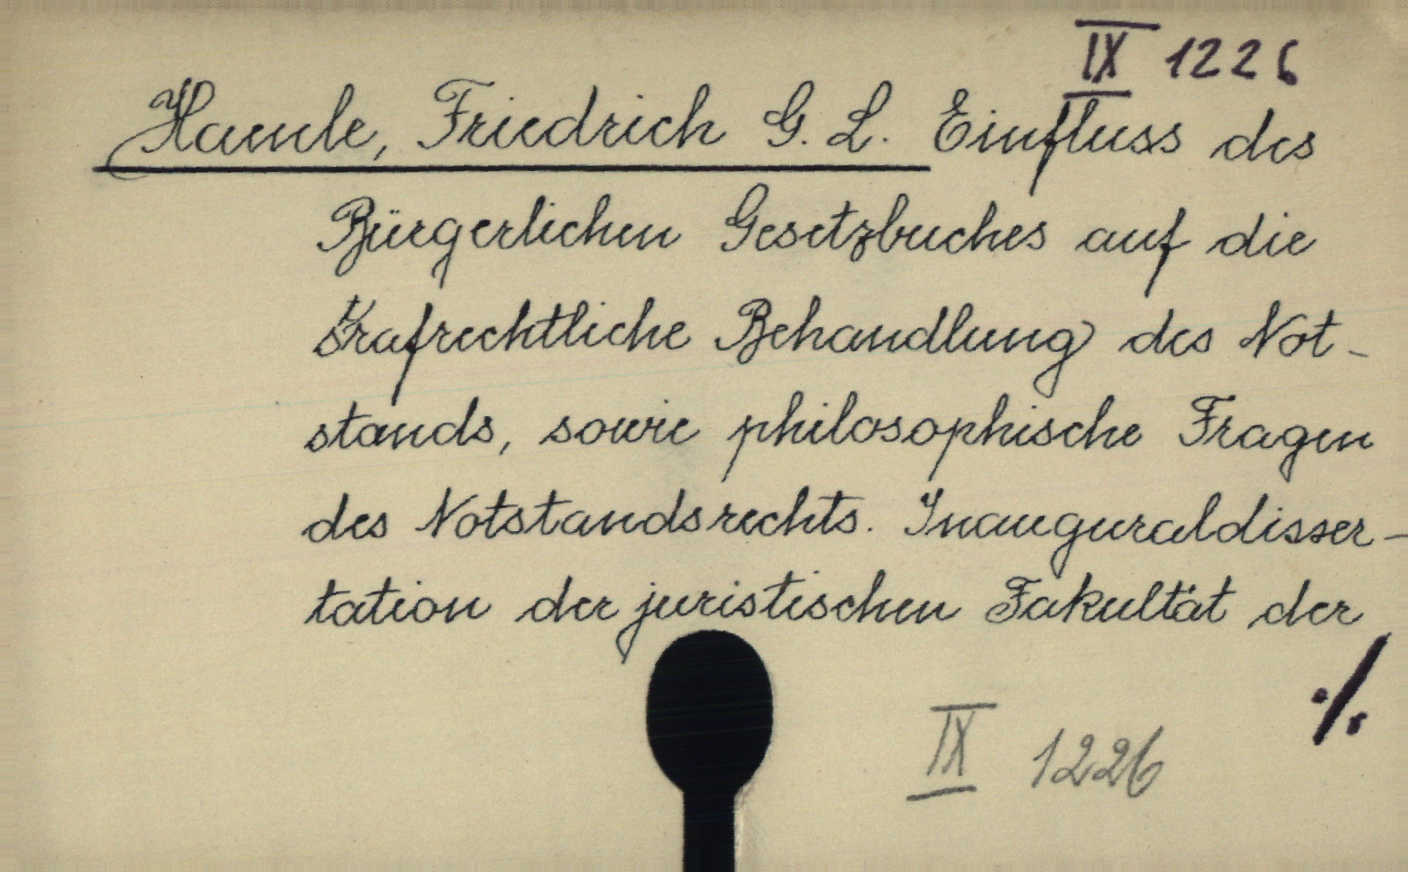 IX 1226
Haemle, Friedrich G. L. Einfluss des
Bürgerlichen Gesetzbuches auf die
strafrechtliche Behandlung des Not-
stands, sowie philosophische Fragen
des Notstandsrechts. Inauguraldisser-
tation der juristischen Fakultät der
./.
IX 1226